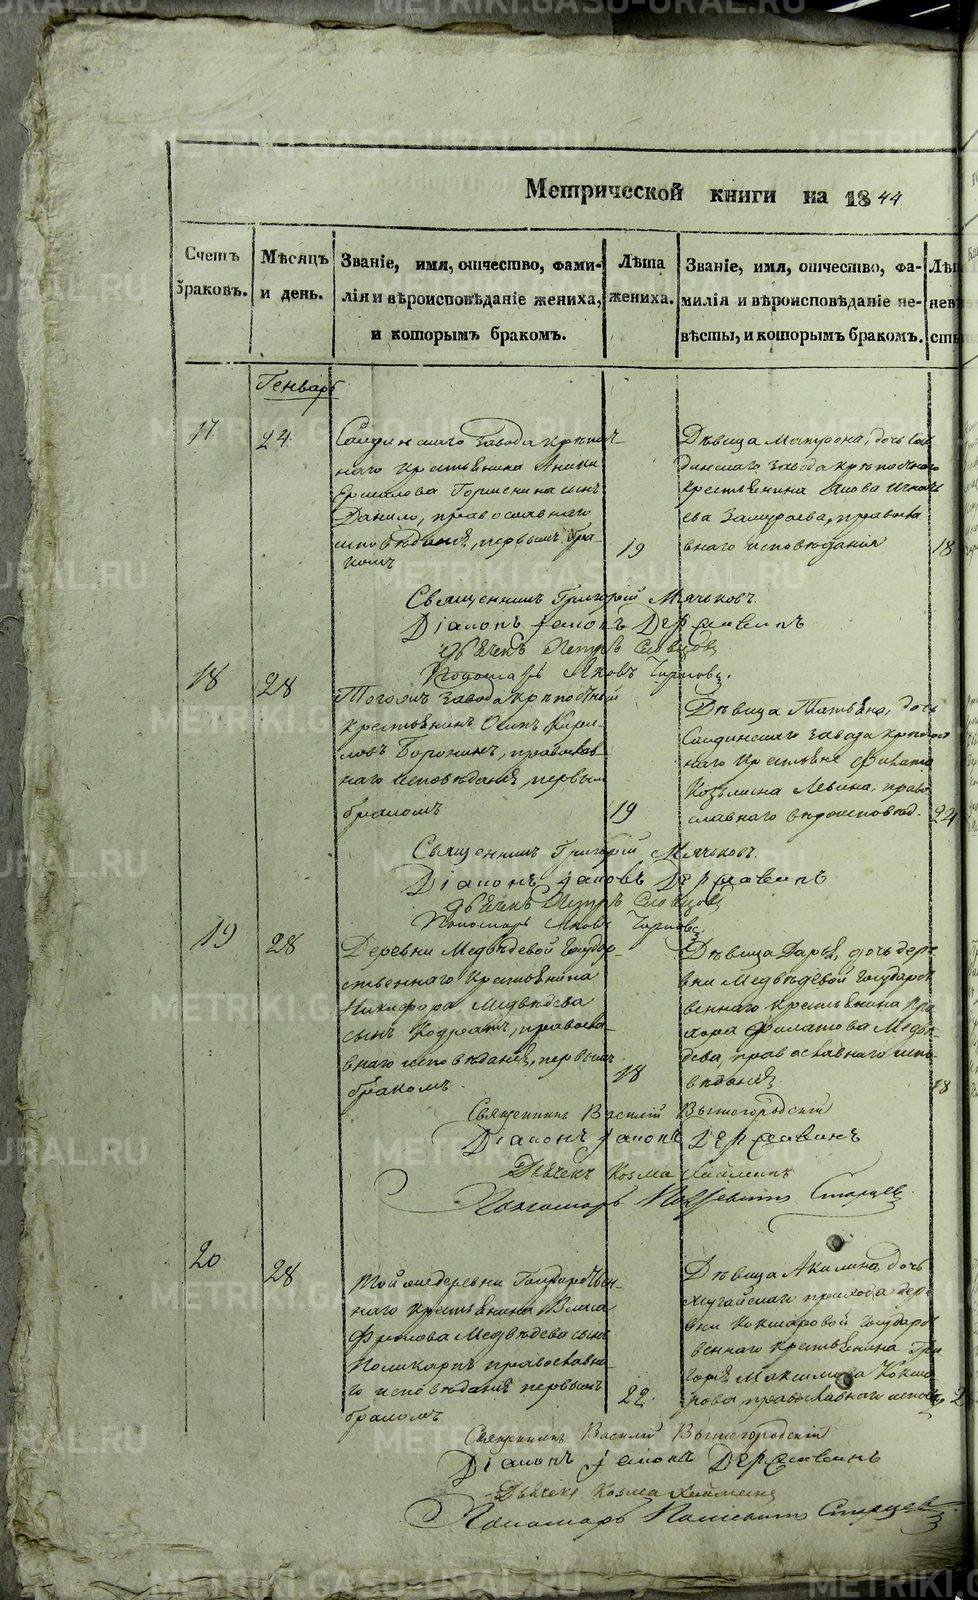 METRIKI.GASO-URAL.RU
Метрической книги на 1844
Счетъ браковъ.
Мѣсяцъ и день.
Званіе, имя, отчество, фами-
лія и вѣроисповѣданіе жениха,
и которымъ бракомъ.
Лѣта
жениха.
Званіе, имя, отчество, фа-
милія и вѣроисповѣданіе не-
вѣсты, и которымъ бракомъ.
Лѣт
нев
сты
Генварь
17.
24.
завода крѣпост-
наго крестьянина
сынъ
Данило, православнаго
исповѣданія, первымъ бра-
комъ
19
Дѣвица Матрона, дочь
завода крѣпостнаго
крестьянина Якова
правосла
внаго исповѣданія
18
Священникъ Григорій Мячковъ.
Діаконъ Іаковъ Державинъ
Дьячекъ Петръ Словцовъ
Пономарь Яковъ
18
28
Тогожъ завода крѣпостный
крестьянинъ Осипъ Кирил-
ловъ православ
наго исповѣданія, первымъ
бракомъ
19
Дѣвица Татьяна, дочь
завода крѣпост
наго
Козьмина Левина, право
славнаго вѣроисповѣд.
24
Священникъ Григорій Мячковъ.
Діаконъ Іаковъ Державинъ
Дьячекъ Петръ Словцовъ
Пономарь Яковъ
19
28
Деревни Медвѣдевой Государ-
ственнаго крестьянина
Никифора Медвѣдева
сынъ Кодратъ, правосла-
внаго исповѣданія, первымъ
бракомъ.
18
Дѣвица Дарья, дочь дере
вни Медвѣдевой Государст
веннаго крестьянина Про
хора Филатова Медвѣ-
дева, православнаго испо-
вѣданія
18
Священникъ Василій Вышегородскій
Діаконъ Іаковъ Державинъ
Дьячекъ Козма
Пономарь Старцев.
20
28
Той же деревни Государствен-
наго крестьянина Власа
Фролова Медвѣдева сынъ
Поликарпъ православна-
го исповѣданія первымъ
бракомъ
22.
Дѣвица Акилина, дочь
прихода дере
вни Кокшаровой Государст
веннаго крестьянина Гри
горья Максимова Кокша
рова православнаго исповѣ
2
Священникъ Василій Вышегородскій
Діаконъ Іаковъ Державинъ
Дьячекъ Козма
Пономарь Старцев